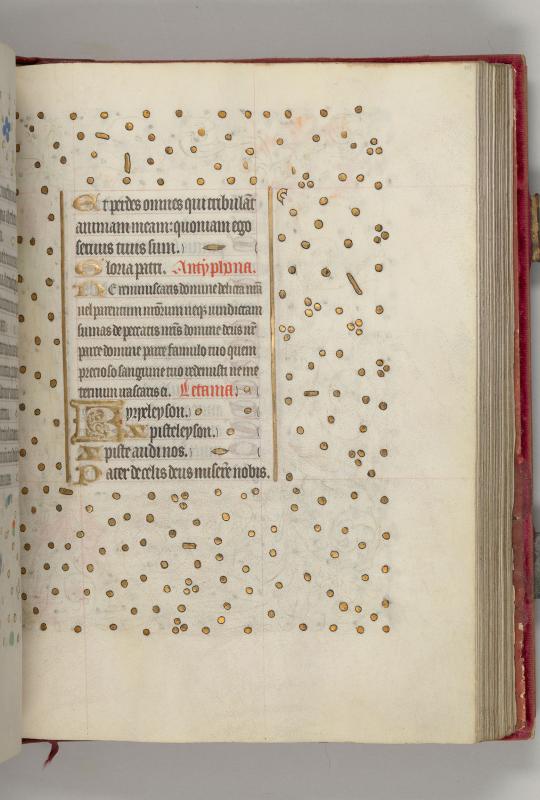 Et perdes omnes qui tribulāt
animam meam: quoniam ego
seruus tuus sum.
Gloria patri. Antyphona.
Ne reminiscaris domine delicta mā
uel parentum nr̄orum neqꝫ uindictam
sumas de peccatis nr̄is domine deus nr̄
parce domine parce famulo tuo quem
precioso sanguine tuo redemisti ne ine
ternum irascaris ei. Letania.
Kyryeleyson.
Xpisteleyson.
Xpiste audi nos.
Pater de celis deus miserē nobis.